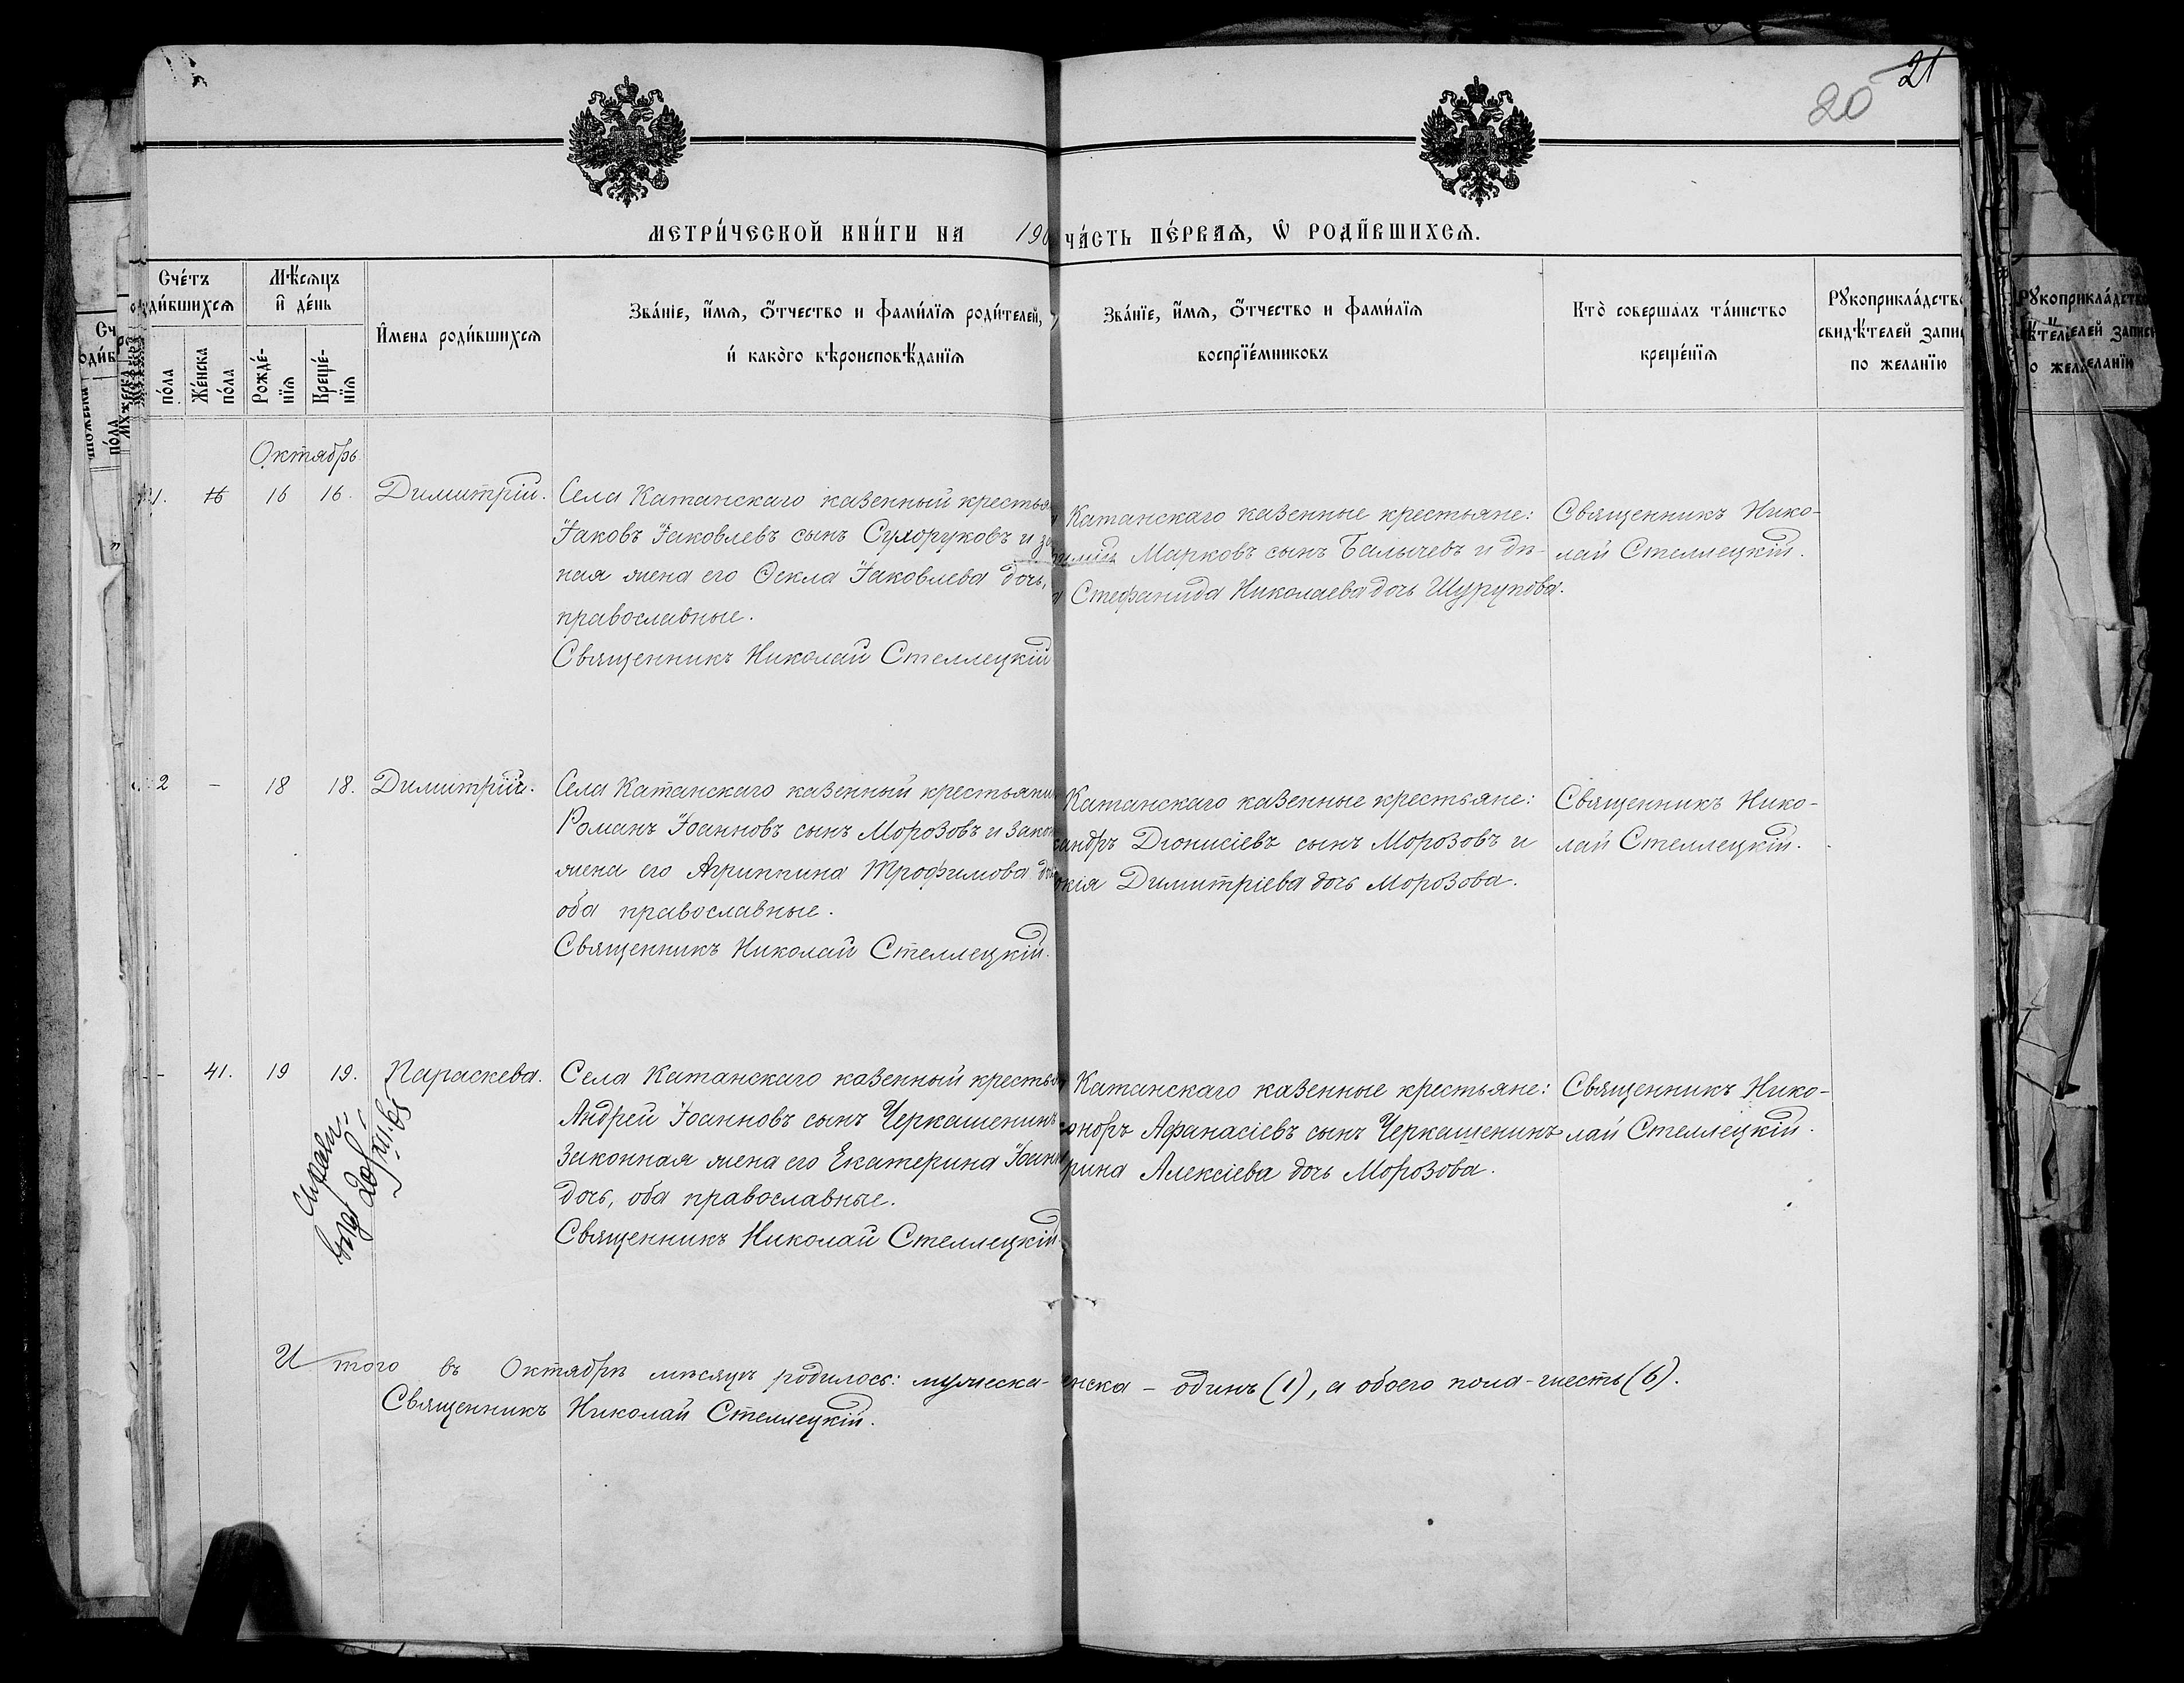 21
20
МЕТРИ́ЧЕСКОЙ КНИ́ГИ НА 190
ЧА́СТЬ ПЕ́РВАѦ, Ѡ РОДИ́ВШИХСѦ.
Сче́тъ
роди́вшихсѧ
по́ла
Же́нска по́ла
Мѣ́сѧцъ и де́нь
Рожде́-нїѧ
Креще́-нїѧ
И́мена роди́вшихсѧ
Зва́нїе, и́мѧ, ѻ́тчество и фами́лїѧ роди́телей,
и како́гѡ вѣроисповѣ́данїѧ
Зва́нїе, и́мѧ, ѻ́тчество и фами́лїѧ
воспрїе́мниковъ
Кто̀ соверша́лъ та́инство
креще́нїѧ
Рꙋкоприкла́дство
свидѣ́телей записи
по желанїю
Октябрь
1. 16 16 16. Димитрій.
Села Катанскаго казенный крестьян
Іаковъ Іаковлевъ сынъ Сухоруковъ и за
ная жена его Ѳекла Іаковлева дочь,
православные.
Священникъ Николай Стеллецкій
Катанскаго казенные крестьяне:
Марковъ сынъ Балычевъ и дѣ-
Стефанида Николаева дочь Шурупова.
Священникъ Нико-
лай Стеллецкій.
2 – 18 18. Димитрій.
Села Катанскаго казенный крестьянин
Романъ Іоанновъ сынъ Морозовъ и закон
жена его Агриппина Трофимова до
оба православные.
Священникъ Николай Стеллецкій.
Катанскаго казенные крестьяне:
сандръ Діонисіевъ сынъ Морозовъ и
окія Димитріева дочь Морозова.
Священникъ Нико-
лай Стеллецкій.
– 41. 19 19. Параскева.
Села Катанскаго казенный крестья
Андрей Іоанновъ сынъ Черкашенинъ
законная жена его Екатерина Іоанн
дочь, оба православные.
Священникъ Николай Стеллецкій
Катанскаго казенные крестьяне:
оноръ Аѳанасіевъ сынъ Черкашенинъ
рина Алексіева дочь Морозова.
Священникъ Нико-
лай Стеллецкій.
Итого въ Октябрѣ мѣсяцѣ родилось: мужеска-
енска – одинъ (1), а обоего пола – шесть (6).
Священникъ Николай Стеллецкій.